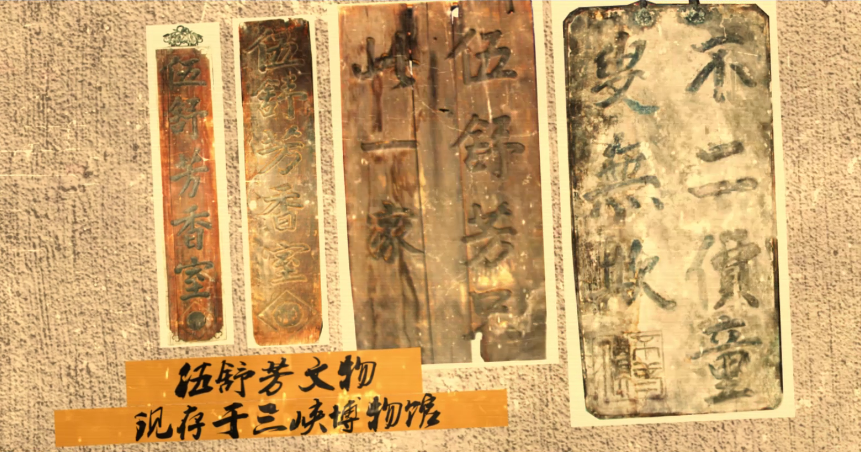 伍舒芳香室
伍舒芳香室
伍舒芳只
此一家
不二價童
叟無欺
伍舒芳文物
现存于三峡博物馆